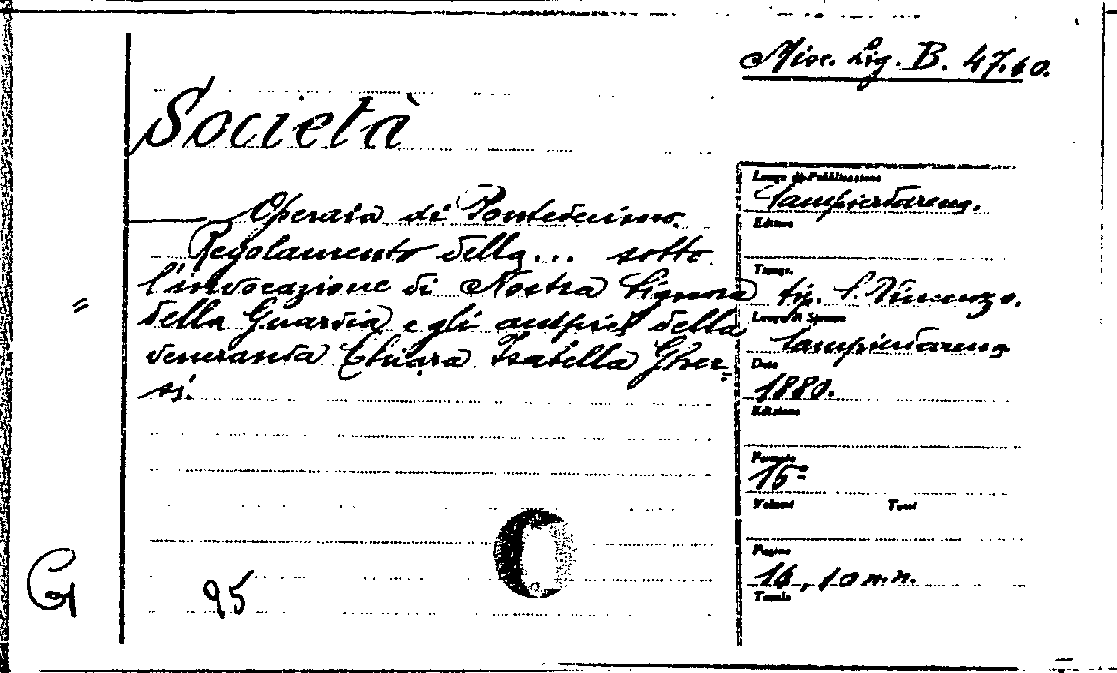 Misc. Lig. B. 47.10.
Società
Operaia di Pontedecimo.
Regolamento della... sotto
l'invocazione di Nostra Signora
della Guardia e gli auspici della
veneranda Chiara Isabella Gher-
si.
Luogo di Pubblicazione
Sampierdarena.
Editore
Tipogr.
tip. S. Vincenzo.
Luogo di Stampa
Sampierdarena
Data
1880.
Edizione
Formato
16°
Volumi Tomi
Pagine
16, 10 m.n.
Tavole
G 95